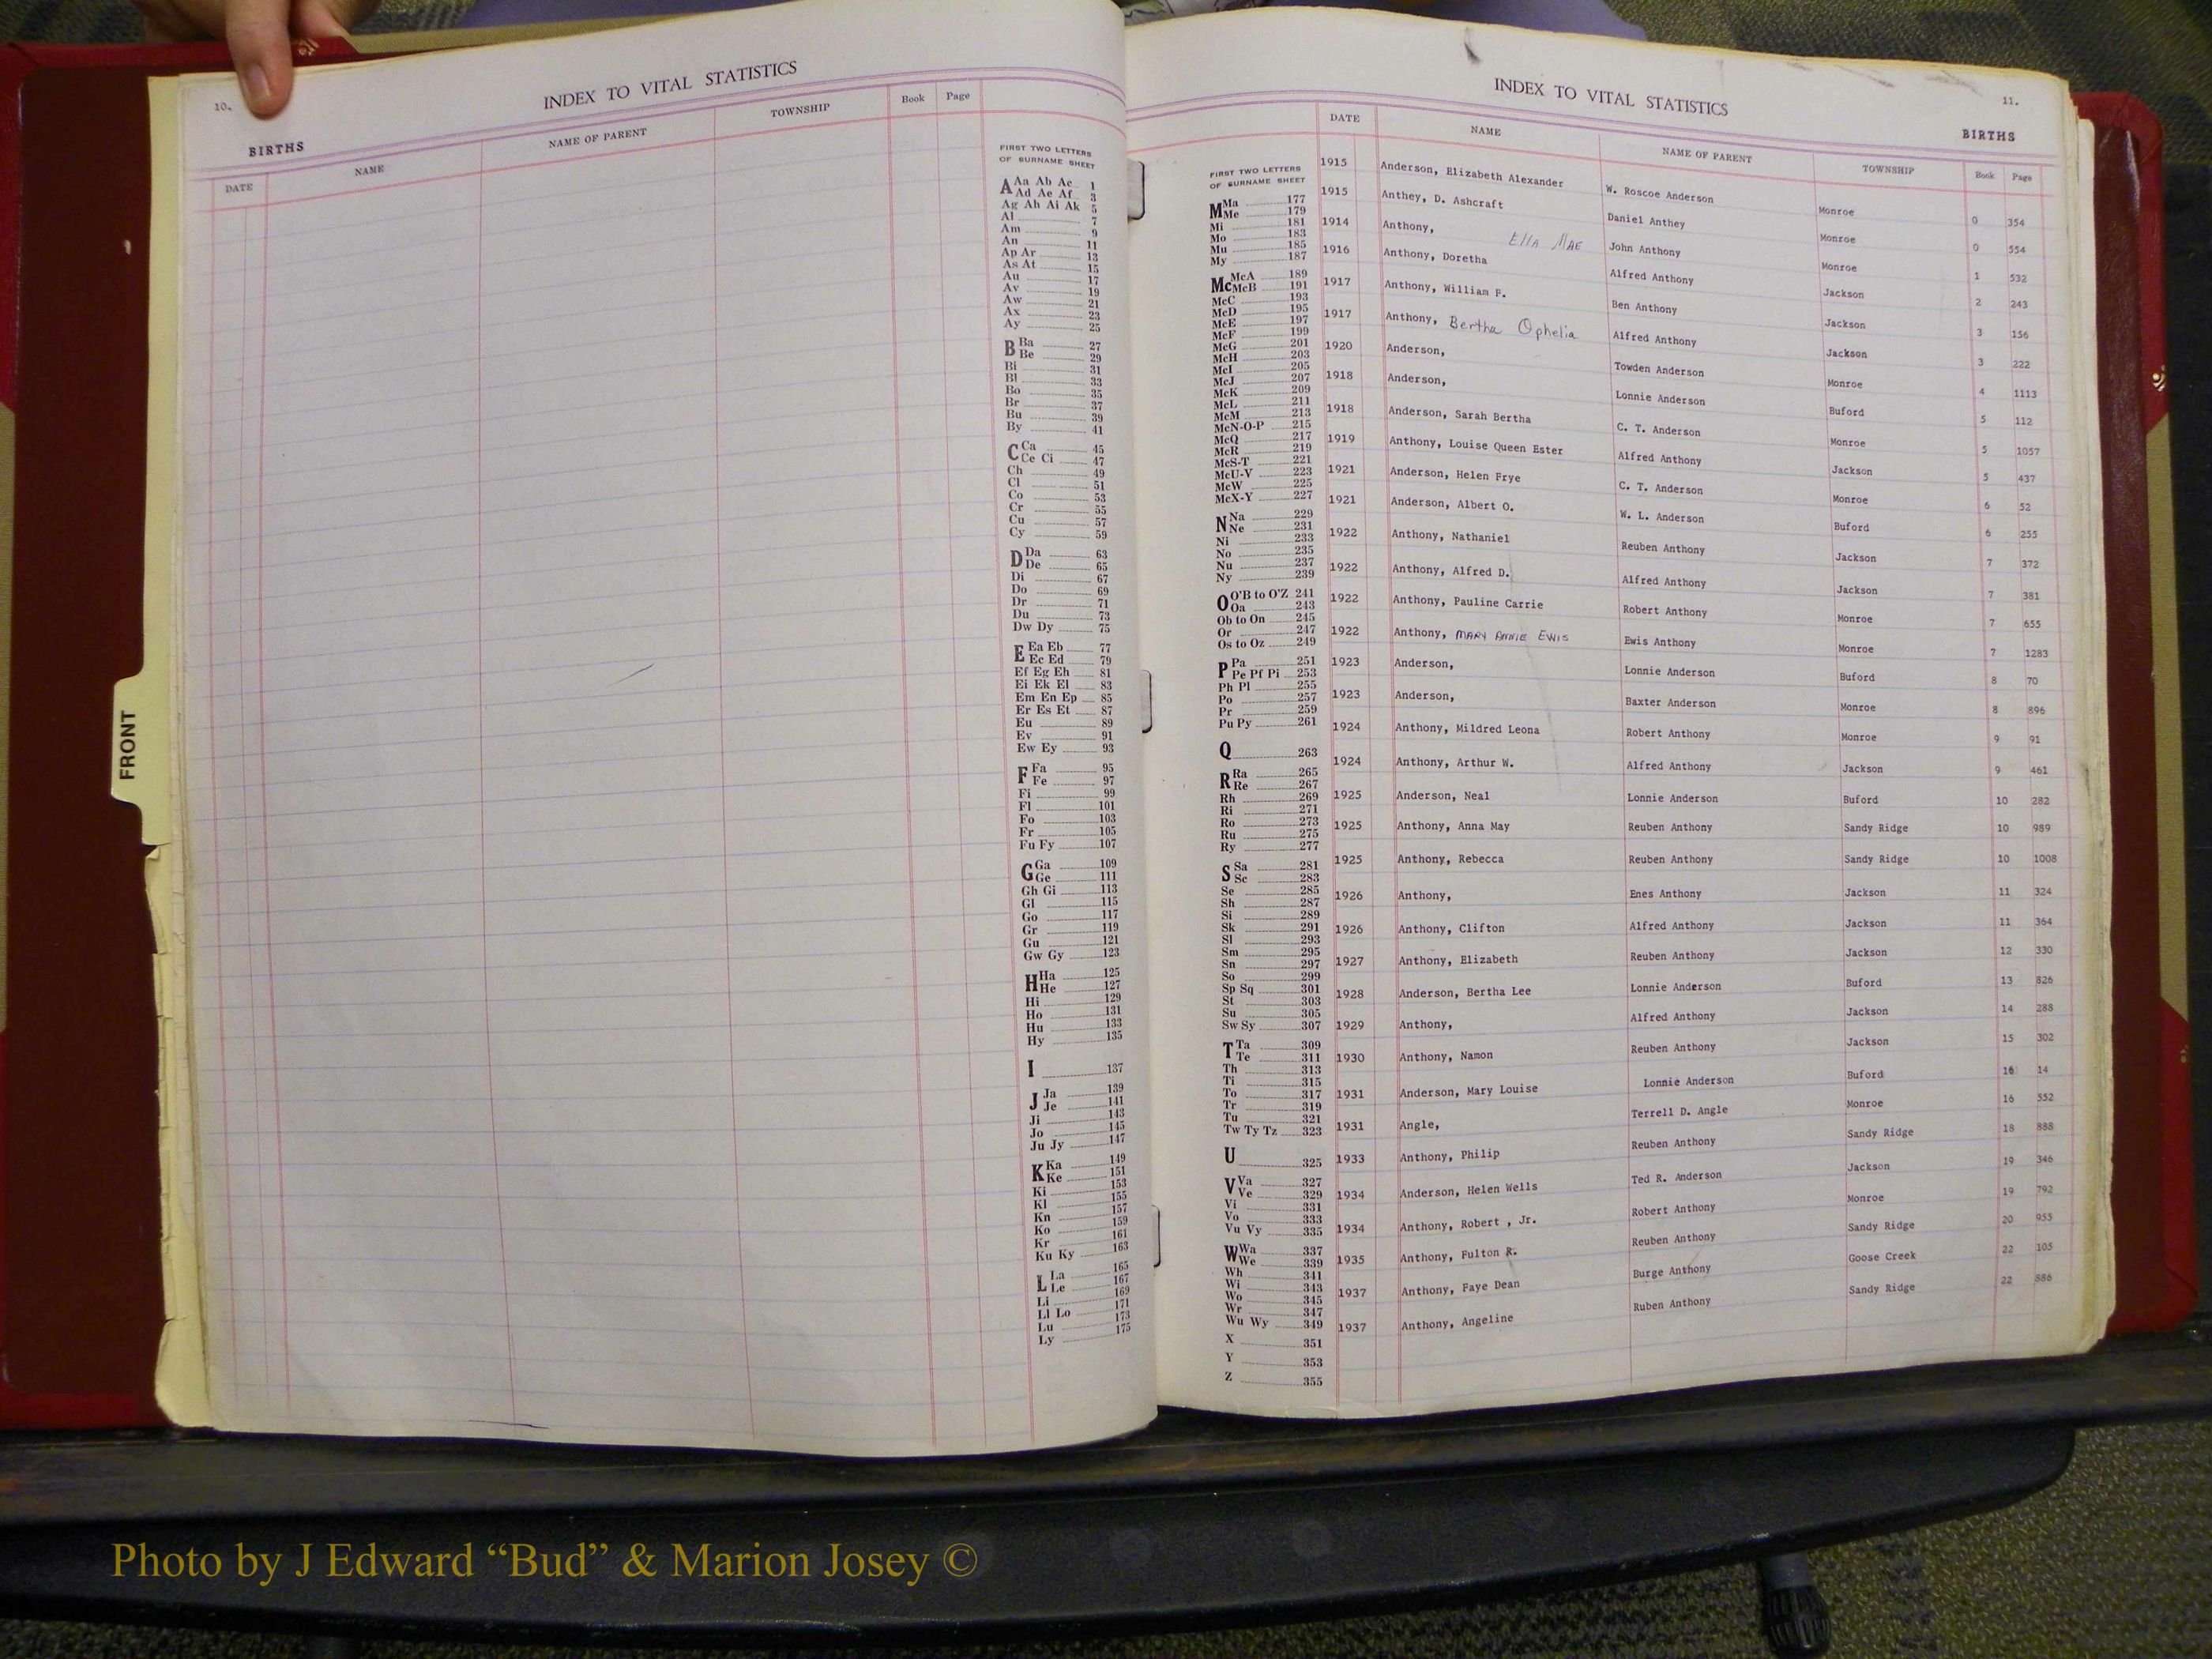 10.
INDEX TO VITAL STATISTICS
BIRTHS
DATE NAME NAME OF PARENT TOWNSHIP Book Page
FIRST TWO LETTERS
OF SURNAME SHEET
A Aa Ab Ac 1
Ad Ae Af 3
Ag Ah Ai Ak 5
Al 7
Am 9
An 11
Ap Ar 13
As At 15
Au 17
Av 19
Aw 21
Ax 23
Ay 25
B Ba 27
Be 29
Bi 31
Bl 33
Bo 35
Br 37
Bu 39
By 41
C Ca 45
Ce Ci 47
Ch 49
Cl 51
Co 53
Cr 55
Cu 57
Cy 59
D Da 63
De 65
Di 67
Do 69
Dr 71
Du 73
Dw Dy 75
E Ea Eb 77
Ec Ed 79
Ef Eg Eh 81
Ei Ek El 83
Em En Ep 85
Er Es Et 87
Eu 89
Ev 91
Ew Ey 93
F Fa 95
Fe 97
Fi 99
Fl 101
Fo 103
Fr 105
Fu Fy 107
G Ga 109
Ge 111
Gh Gi 113
Gl 115
Go 117
Gr 119
Gu 121
Gw Gy 123
H Ha 125
He 127
Hi 129
Ho 131
Hu 133
Hy 135
I 137
J Ja 139
Je 141
Ji 143
Jo 145
Ju Jy 147
K Ka 149
Ke 151
Ki 153
Kl 155
Kn 157
Ko 159
Kr 161
Ku Ky 163
L La 165
Le 167
Li 169
Ll Lo 171
Lu 173
Ly 175
FRONT
INDEX TO VITAL STATISTICS
11.
BIRTHS
FIRST TWO LETTERS
OF SURNAME SHEET
M Ma 177
Me 179
Mi 181
Mo 183
Mu 185
My 187
Mc McA 189
McB 191
McC 193
McD 195
McE 197
McF 199
McG 201
McH 203
McI 205
McJ 207
McK 209
McL 211
McM 213
McN-O-P 215
McQ 217
McR 219
McS-T 221
McU-V 223
McW 225
McX-Y 227
N Na 229
Ne 231
Ni 233
No 235
Nu 237
Ny 239
O O'B to O'Z 241
Oa 243
Ob to On 245
Or 247
Os to Oz 249
P Pa 251
Pe Pf Pi 253
Ph Pl 255
Po 257
Pr 259
Pu Py 261
Q 263
R Ra 265
Re 267
Rh 269
Ri 271
Ro 273
Ru 275
Ry 277
S Sa 281
Sc 283
Se 285
Sh 287
Si 289
Sk 291
Sl 293
Sm 295
Sn 297
So 299
Sp Sq 301
St 303
Su 305
Sw Sy 307
T Ta 309
Te 311
Th 313
Ti 315
To 317
Tr 319
Tu 321
Tw Ty Tz 323
U 325
V Va 327
Ve 329
Vi 331
Vo 333
Vu Vy 335
W Wa 337
We 339
Wh 341
Wi 343
Wo 345
Wr 347
Wu Wy 349
X 351
Y 353
Z 355
DATE NAME NAME OF PARENT TOWNSHIP Book Page
1915 Anderson, Elizabeth Alexander W. Roscoe Anderson Monroe 0 354
1915 Anthey, D. Ashcraft Daniel Anthey Monroe 0 554
1914 Anthony, Ella Mae John Anthony Monroe 1 532
1916 Anthony, Doretha Alfred Anthony Jackson 2 243
1917 Anthony, William P. Ben Anthony Jackson 3 156
1917 Anthony, Bertha Ophelia Alfred Anthony Jackson 3 222
1920 Anderson, Towden Anderson Monroe 4 1113
1918 Anderson, Lonnie Anderson Buford 5 112
1918 Anderson, Sarah Bertha C. T. Anderson Monroe 5 1057
1919 Anthony, Louise Queen Ester Alfred Anthony Jackson 5 437
1921 Anderson, Helen Frye C. T. Anderson Monroe 6 52
1921 Anderson, Albert O. W. L. Anderson Buford 6 255
1922 Anthony, Nathaniel Reuben Anthony Jackson 7 372
1922 Anthony, Alfred D. Alfred Anthony Jackson 7 381
1922 Anthony, Pauline Carrie Robert Anthony Monroe 7 655
1922 Anthony, MARY ANNIE EWIS Ewis Anthony Monroe 7 1283
1923 Anderson, Lonnie Anderson Buford 8 70
1923 Anderson, Baxter Anderson Monroe 8 896
1924 Anthony, Mildred Leona Robert Anthony Monroe 9 91
1924 Anthony, Arthur W. Alfred Anthony Jackson 9 461
1925 Anderson, Neal Lonnie Anderson Buford 10 282
1925 Anthony, Anna May Reuben Anthony Sandy Ridge 10 989
1925 Anthony, Rebecca Reuben Anthony Sandy Ridge 10 1008
1926 Anthony, Enes Anthony Jackson 11 324
1926 Anthony, Clifton Alfred Anthony Jackson 11 364
1927 Anthony, Elizabeth Reuben Anthony Jackson 12 330
1928 Anderson, Bertha Lee Lonnie Anderson Buford 13 826
1929 Anthony, Alfred Anthony Jackson 14 288
1930 Anthony, Namon Reuben Anthony Jackson 15 302
1931 Anderson, Mary Louise Lonnie Anderson Buford 16 14
1931 Angle, Terrell D. Angle Monroe 16 552
1933 Anthony, Philip Reuben Anthony Sandy Ridge 18 888
1934 Anderson, Helen Wells Ted R. Anderson Jackson 19 346
1934 Anthony, Robert , Jr. Robert Anthony Monroe 19 792
1935 Anthony, Fulton R. Reuben Anthony Sandy Ridge 20 955
1937 Anthony, Faye Dean Burge Anthony Goose Creek 22 105
1937 Anthony, Angeline Ruben Anthony Sandy Ridge 22 886
Photo by J Edward “Bud” & Marion Josey ©